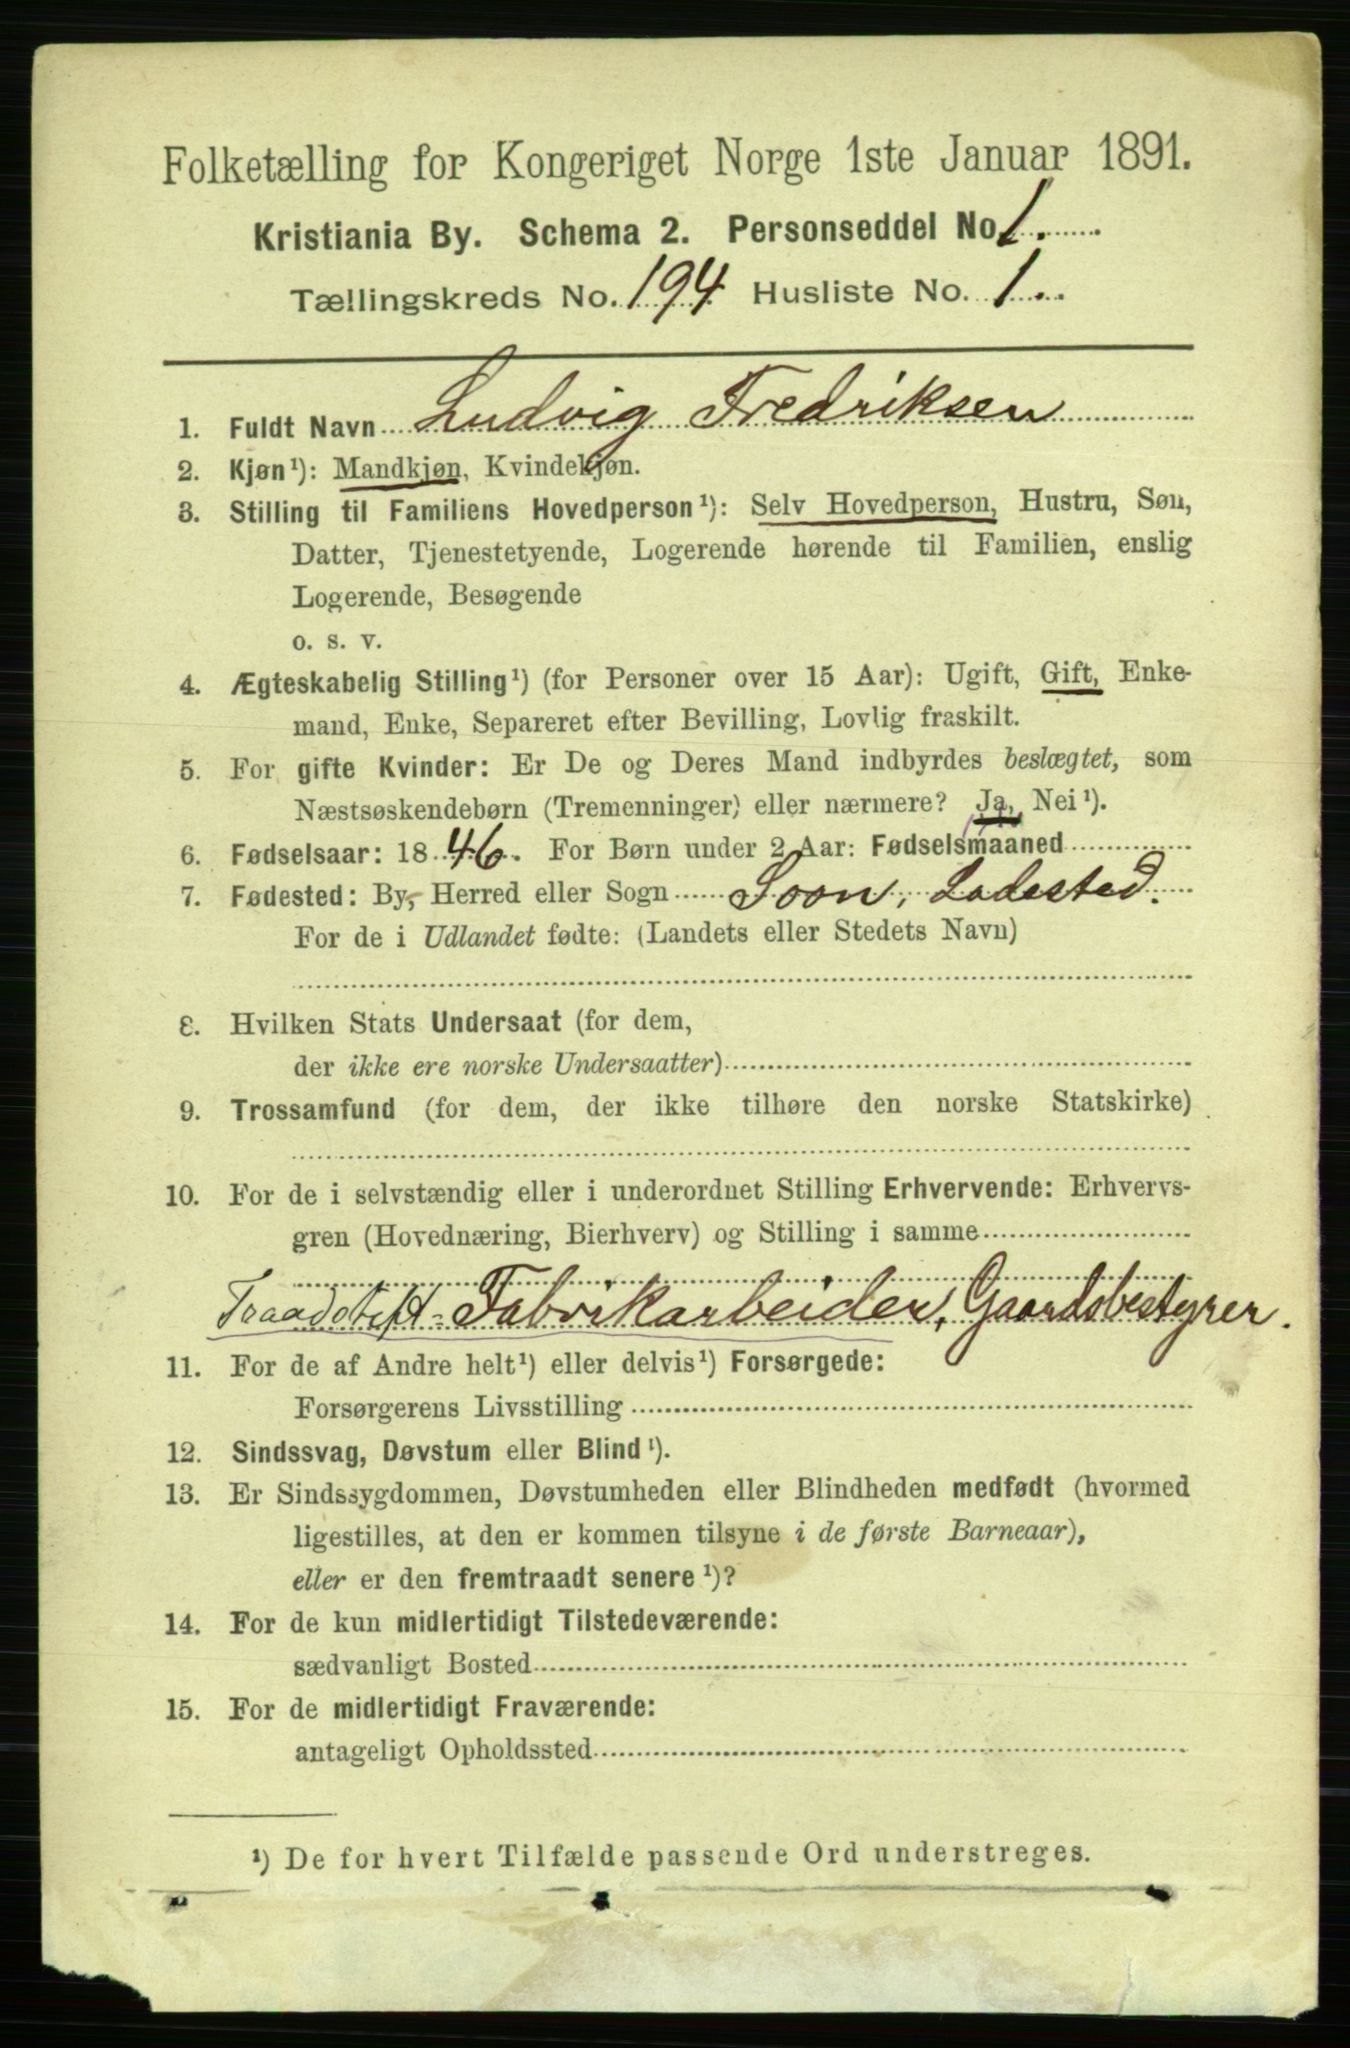 Folketælling for Kongeriget Norge 1ste Januar 1891.
Kristiania By. Schema 2. Personseddel No. 1.
Tællingskreds No. 194 Husliste No. 1.
1. Fuldt Navn Ludvig Fredriksen
2. Kjøn¹): Mandkjøn, Kvindekjøn.
3. Stilling til Familiens Hovedperson¹): Selv Hovedperson, Hustru, Søn,
Datter, Tjenestetyende, Logerende hørende til Familien, enslig
Logerende, Besøgende
o. s. v.
4. Ægteskabelig Stilling¹) (for Personer over 15 Aar): Ugift, Gift, Enke-
mand, Enke, Separeret efter Bevilling, Lovlig fraskilt.
5. For gifte Kvinder: Er De og Deres Mand indbyrdes beslægtet, som
Næstsøskendebørn (Tremenninger) eller nærmere? Ja, Nei¹).
6. Fødselsaar: 1846. For Børn under 2 Aar: Fødselsmaaned
7. Fødested: By, Herred eller Sogn Soon, Ladested.
For de i Udlandet fødte: (Landets eller Stedets Navn)
8. Hvilken Stats Undersaat (for dem,
der ikke ere norske Undersaatter)
9. Trossamfund (for dem, der ikke tilhøre den norske Statskirke)
10. For de i selvstændig eller i underordnet Stilling Erhvervende: Erhvervs-
gren (Hovednæring, Bierhverv) og Stilling i samme
Traadstift-Fabrikarbeider, Gaardsbestyrer.
11. For de af Andre helt¹) eller delvis¹) Forsørgede:
Forsørgerens Livsstilling
12. Sindssvag, Døvstum eller Blind¹).
13. Er Sindssygdommen, Døvstumheden eller Blindheden medfødt (hvormed
ligestilles, at den er kommen tilsyne i de første Barneaar),
eller er den fremtraadt senere¹)?
14. For de kun midlertidigt Tilstedeværende:
sædvanligt Bosted
15. For de midlertidigt Fraværende:
antageligt Opholdssted
¹) De for hvert Tilfælde passende Ord understreges.